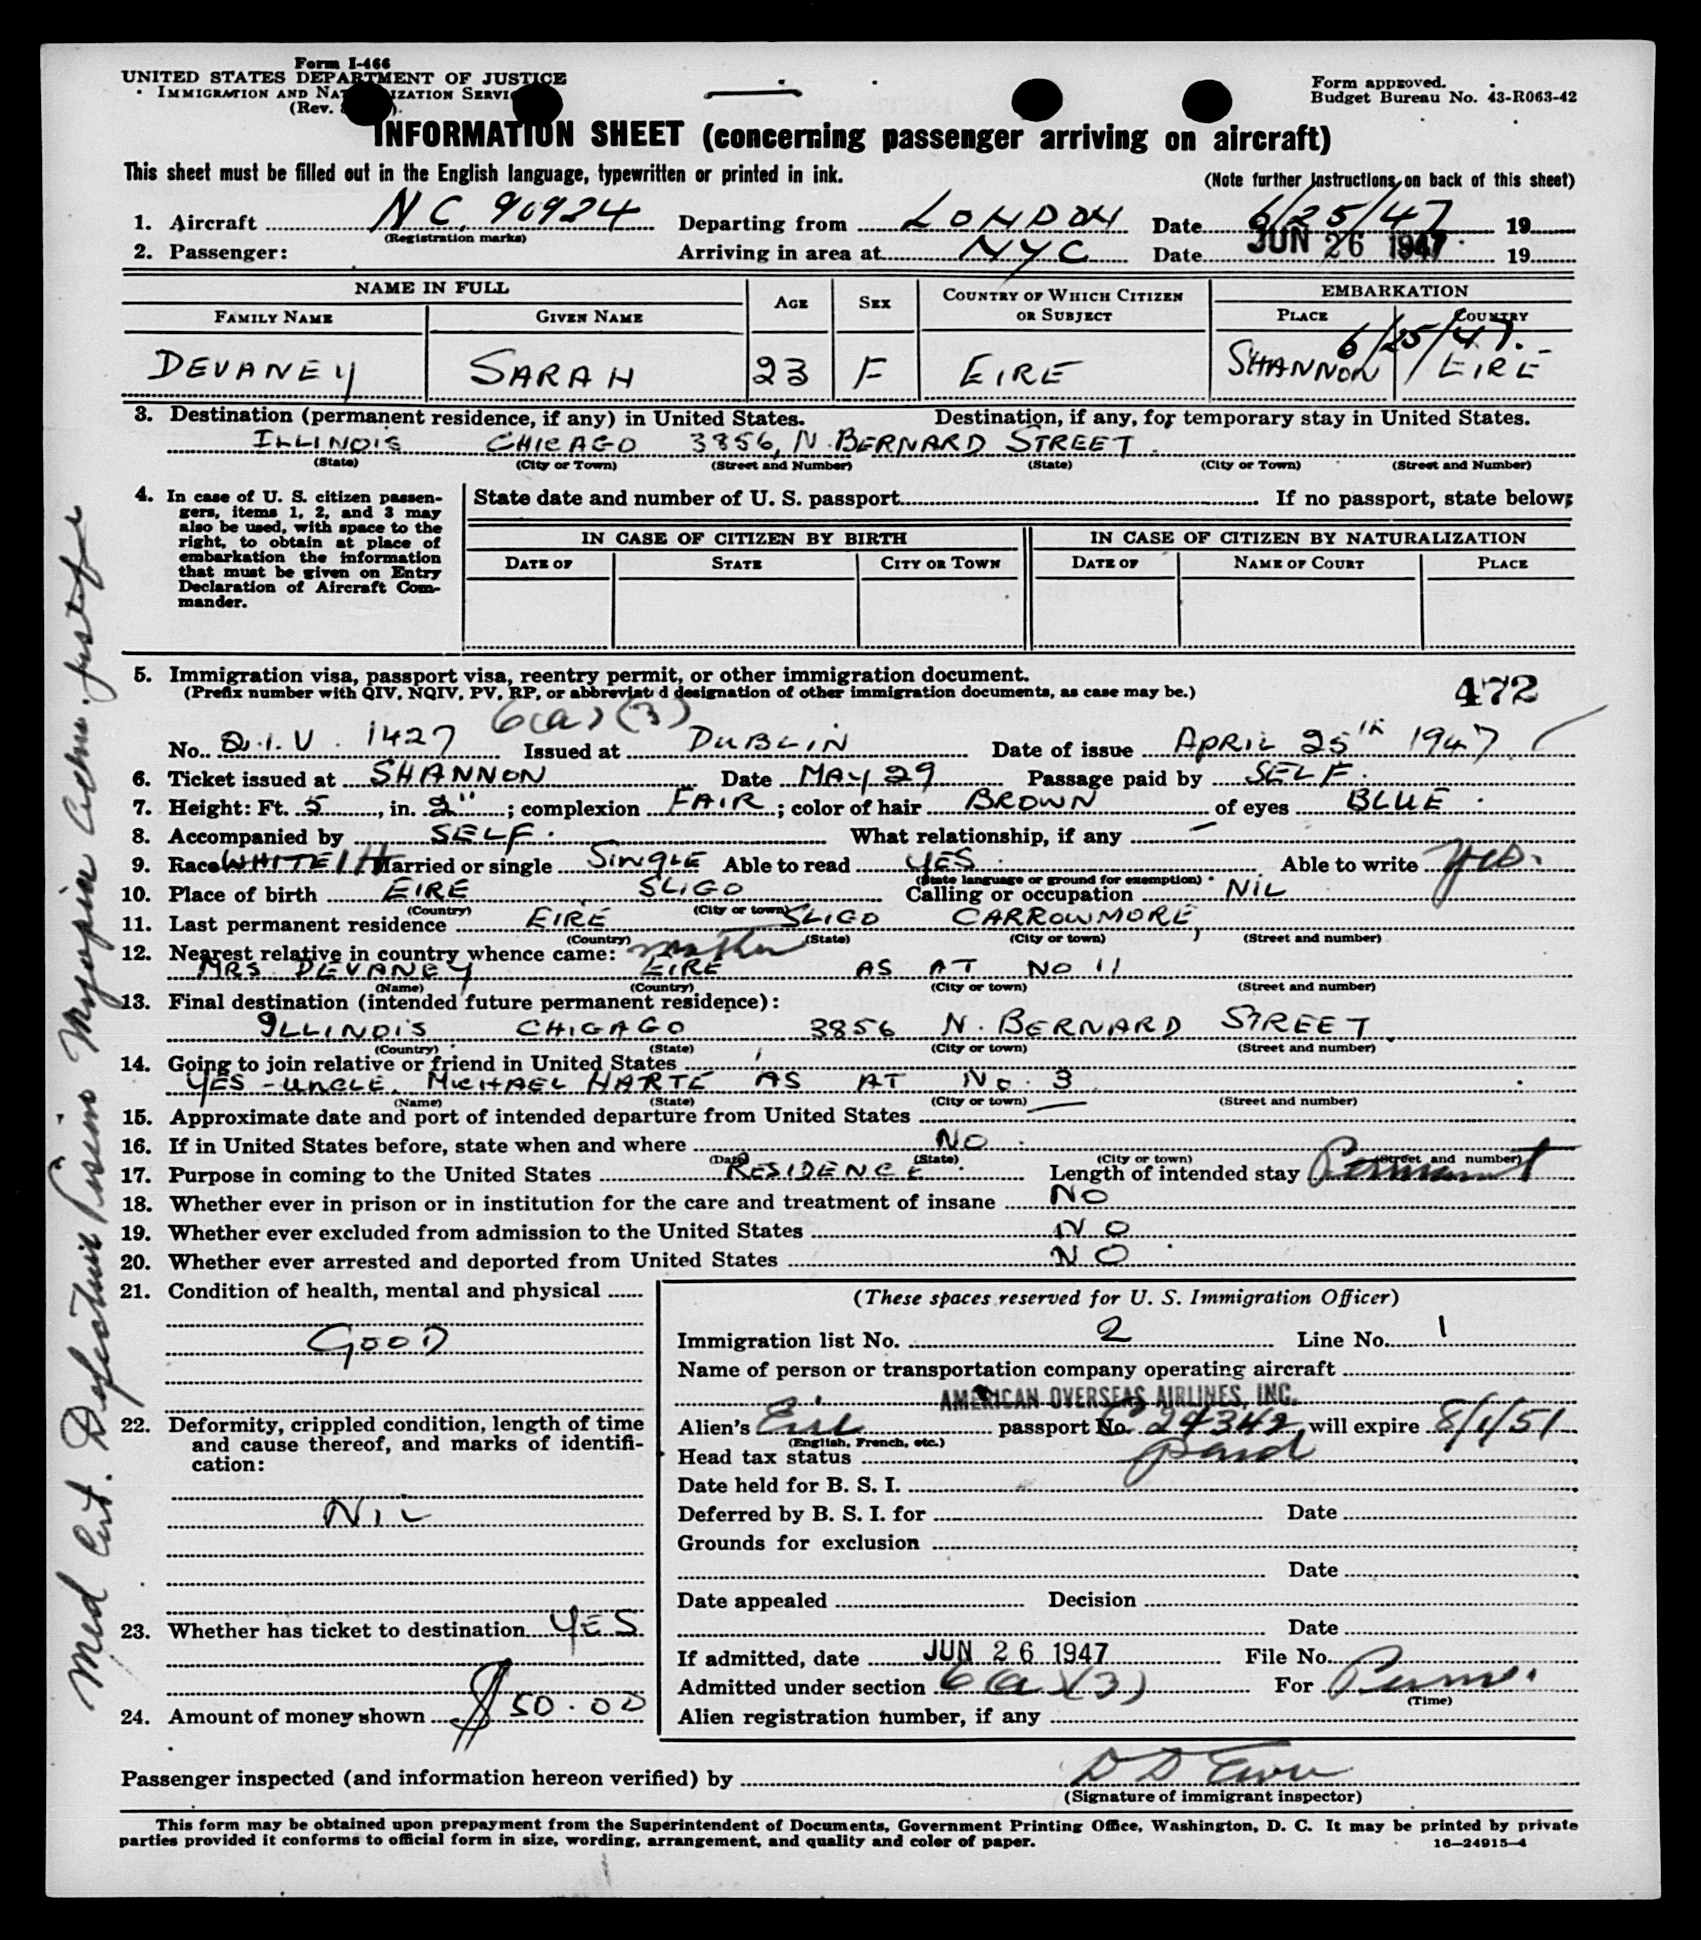 Form I-466
UNITED STATES DEPARTMENT OF JUSTICE
IMMIGRATION AND NATURALIZATION SERVICE
(Rev.
Form approved.
Budget Bureau No. 43-R063-42
INFORMATION SHEET (concerning passenger arriving on aircraft)
This sheet must be filled out in the English language, typewritten or printed in ink.
(Note further instructions on back of this sheet)
1. Aircraft NC. 90924 Departing from LONDON Date 6/25/47 19
(Registration marks)
2. Passenger: Arriving in area at NYC Date JUN 26 1947 19
NAME IN FULL AGE SEX COUNTRY OF WHICH CITIZEN OR SUBJECT EMBARKATION
FAMILY NAME GIVEN NAME PLACE COUNTRY
6/25/47.
DEVANEY SARAH 23 F EIRE SHANNON EIRE
3. Destination (permanent residence, if any) in United States. Destination, if any, for temporary stay in United States.
ILLINOIS CHICAGO 3856, N. BERNARD STREET.
(State) (City or Town) (Street and Number) (State) (City or Town) (Street and Number)
4. In case of U. S. citizen passen-
gers, items 1, 2, and 3 may
also be used, with space to the
right, to obtain at place of
embarkation the information
that must be given on Entry
Declaration of Aircraft Com-
mander.
State date and number of U. S. passport If no passport, state below:
IN CASE OF CITIZEN BY BIRTH IN CASE OF CITIZEN BY NATURALIZATION
DATE OF STATE CITY OR TOWN DATE OF NAME OF COURT PLACE
5. Immigration visa, passport visa, reentry permit, or other immigration document.
(Prefix number with QIV, NQIV, PV, RP, or abbreviated designation of other immigration documents, as case may be.)
472
6(a)(3)
No. Q.I.V. 1427 Issued at DUBLIN Date of issue APRIL 25th 1947
6. Ticket issued at SHANNON Date MAY 29 Passage paid by SELF.
7. Height: Ft. 5, in. 2"; complexion FAIR; color of hair BROWN of eyes BLUE.
8. Accompanied by SELF. What relationship, if any —
9. Race WHITE Married or single SINGLE Able to read YES. Able to write Yes.
(State language or ground for exemption)
10. Place of birth EIRE SLIGO Calling or occupation NIL
(Country) (City or town)
11. Last permanent residence EIRE SLIGO CARROWMORE,
(Country) (State) (City or town) (Street and number)
12. Nearest relative in country whence came: mother
MRS DEVANEY EIRE AS AT NO 11
(Name) (Country) (City or town) (Street and number)
13. Final destination (intended future permanent residence):
ILLINOIS CHICAGO 3856 N. BERNARD STREET
(Country) (State) (City or town) (Street and number)
14. Going to join relative or friend in United States
YES - UNCLE. MICHAEL HARTE AS AT No. 3
(Name) (State) (City or town) (Street and number)
15. Approximate date and port of intended departure from United States —
16. If in United States before, state when and where NO.
(Date) (State) (City or town) (Street and number)
17. Purpose in coming to the United States RESIDENCE. Length of intended stay Permanent
18. Whether ever in prison or in institution for the care and treatment of insane NO
19. Whether ever excluded from admission to the United States NO
20. Whether ever arrested and deported from United States NO
21. Condition of health, mental and physical
GOOD
22. Deformity, crippled condition, length of time
and cause thereof, and marks of identifi-
cation:
NIL
23. Whether has ticket to destination YES
24. Amount of money shown $50.00
(These spaces reserved for U. S. Immigration Officer)
Immigration list No. 2 Line No. 1
Name of person or transportation company operating aircraft
AMERICAN OVERSEAS AIRLINES, INC.
Alien's Eire passport No. 24342, will expire 8/1/51
(English, French, etc.)
Head tax status paid
Date held for B. S. I.
Deferred by B. S. I. for Date
Grounds for exclusion
Date
Date appealed Decision
Date
If admitted, date JUN 26 1947 File No.
Admitted under section 6(a)(3) For Perm.
(Time)
Alien registration number, if any
Passenger inspected (and information hereon verified) by
(Signature of immigrant inspector)
This form may be obtained upon prepayment from the Superintendent of Documents, Government Printing Office, Washington, D. C. It may be printed by private
parties provided it conforms to official form in size, wording, arrangement, and quality and color of paper.
16—24915-4
Med Cert. Defective Vision Myopia